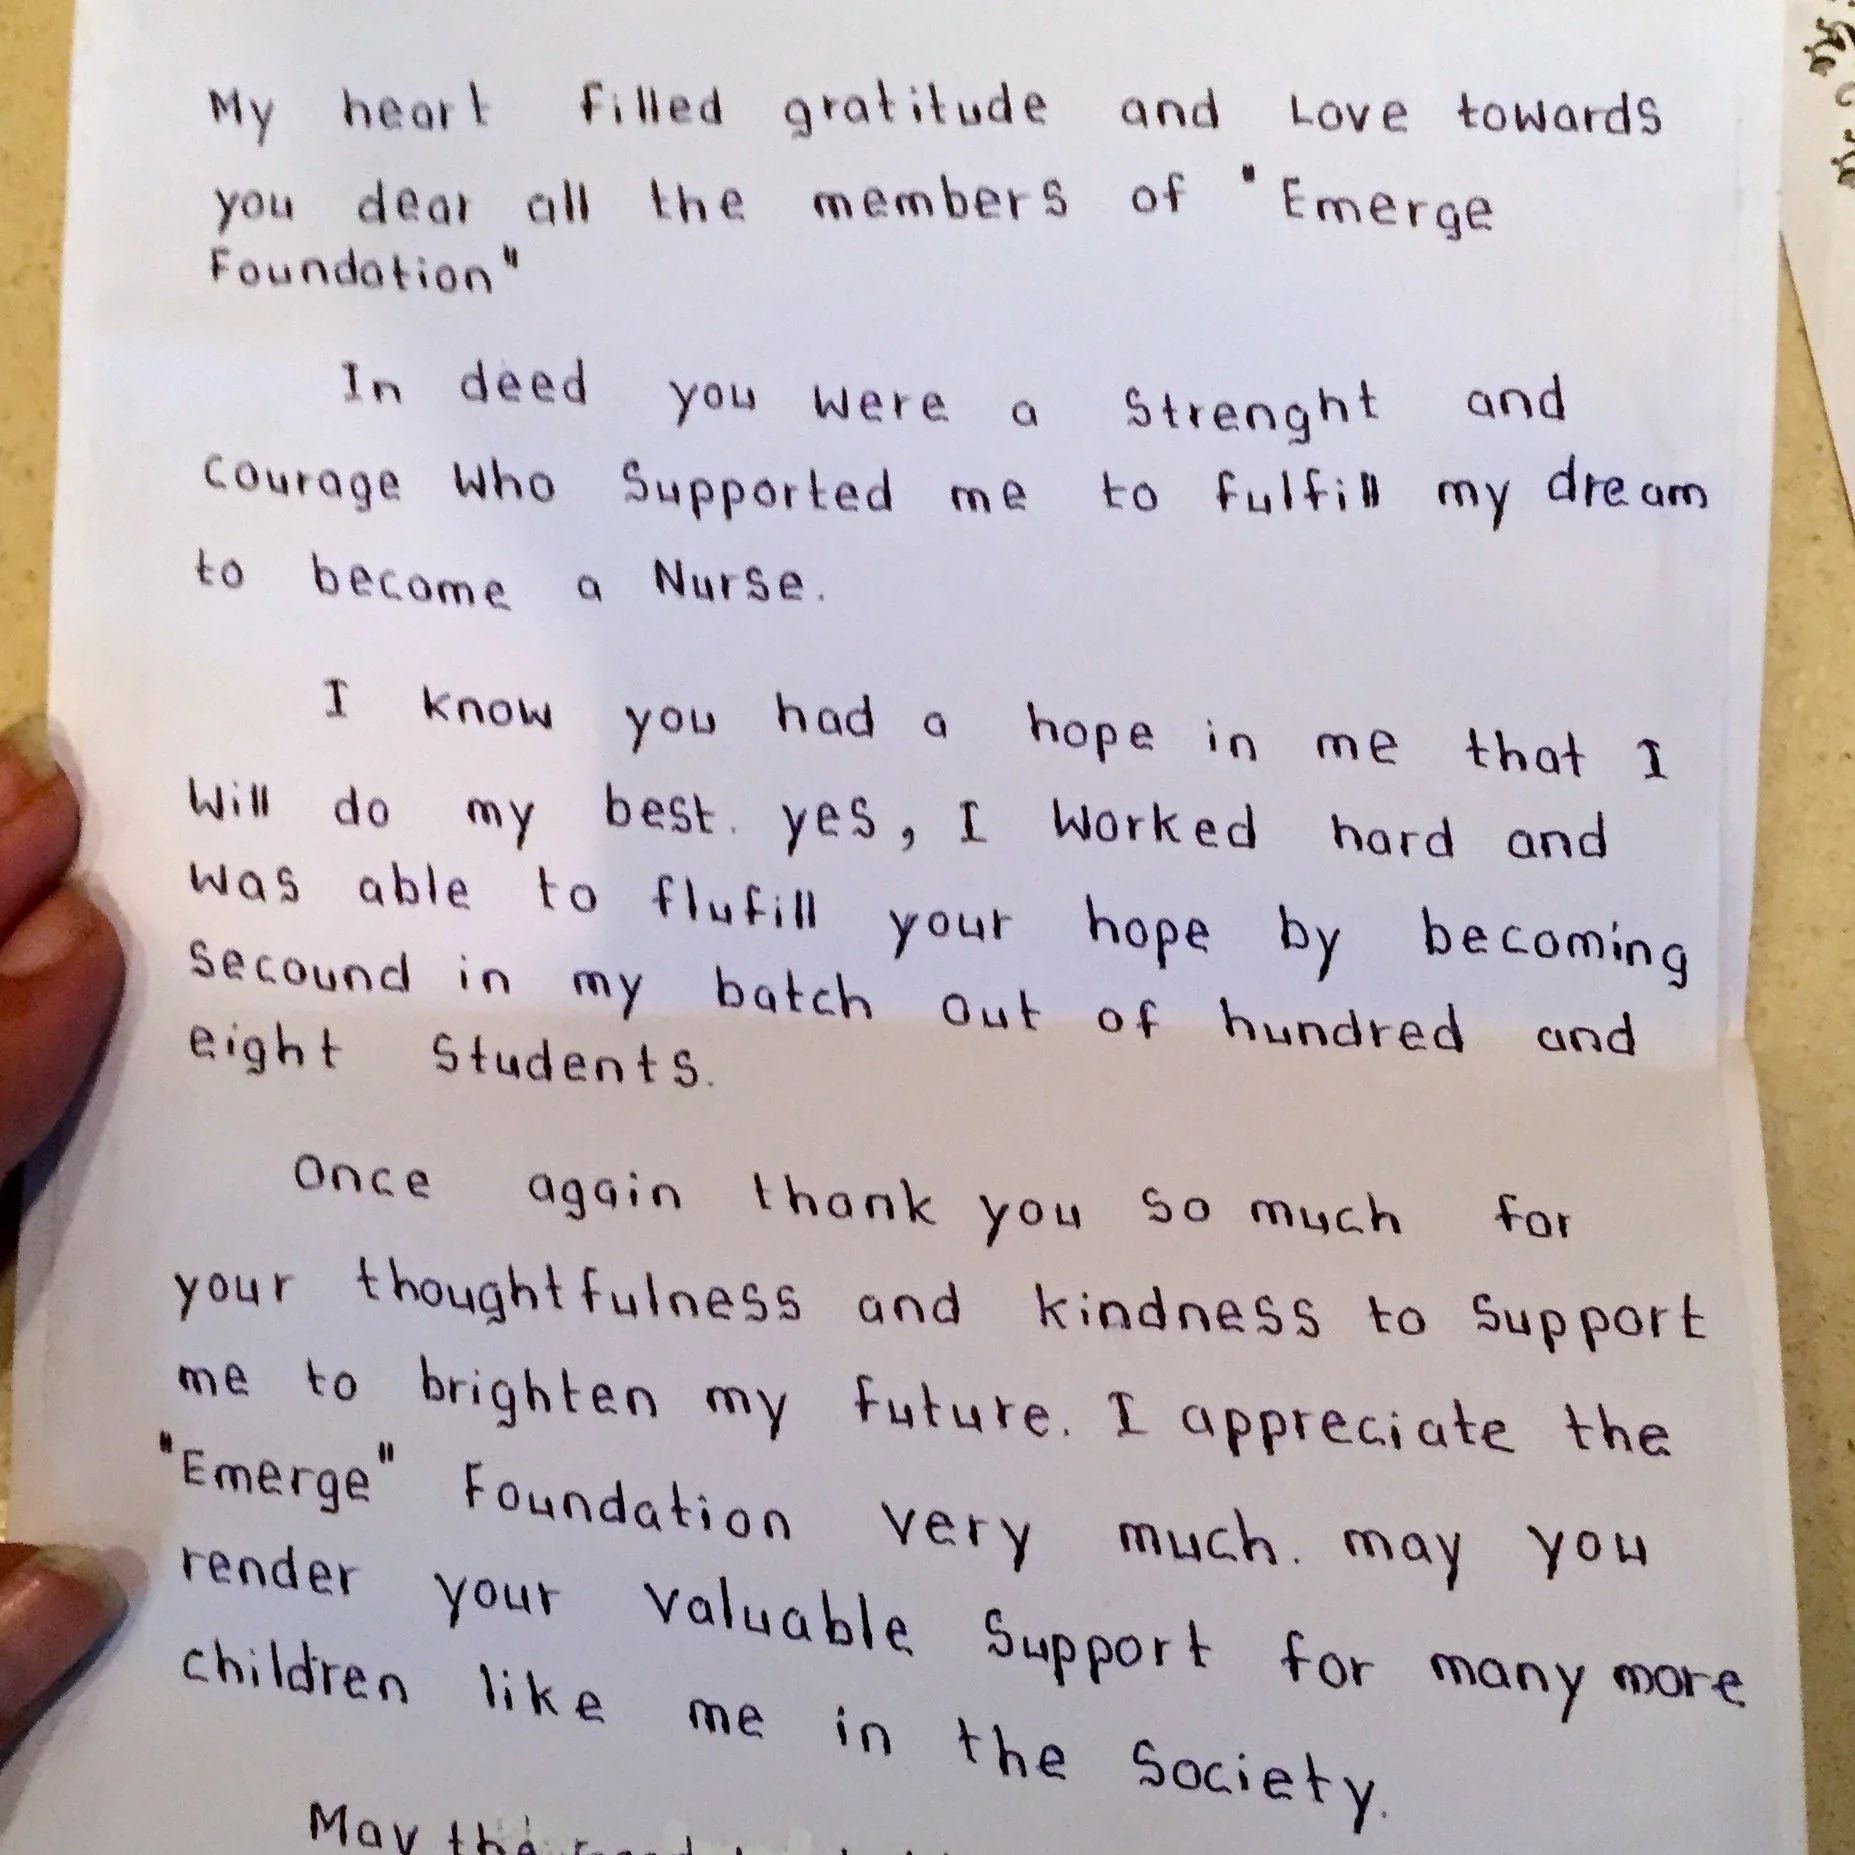 My heart filled gratitude and Love towards
you dear all the members of "Emerge
Foundation"
In deed you were a Strenght and
courage who Supported me to fulfill my dream
to become a Nurse.
I know you had a hope in me that I
will do my best. yes, I worked hard and
was able to flufill your hope by becoming
Secound in my batch out of hundred and
eight Students.
Once again thank you so much for
your thoughtfulness and kindness to Support
me to brighten my future. I appreciate the
"Emerge" Foundation very much. may you
render your valuable Support for many more
children like me in the Society.
May the